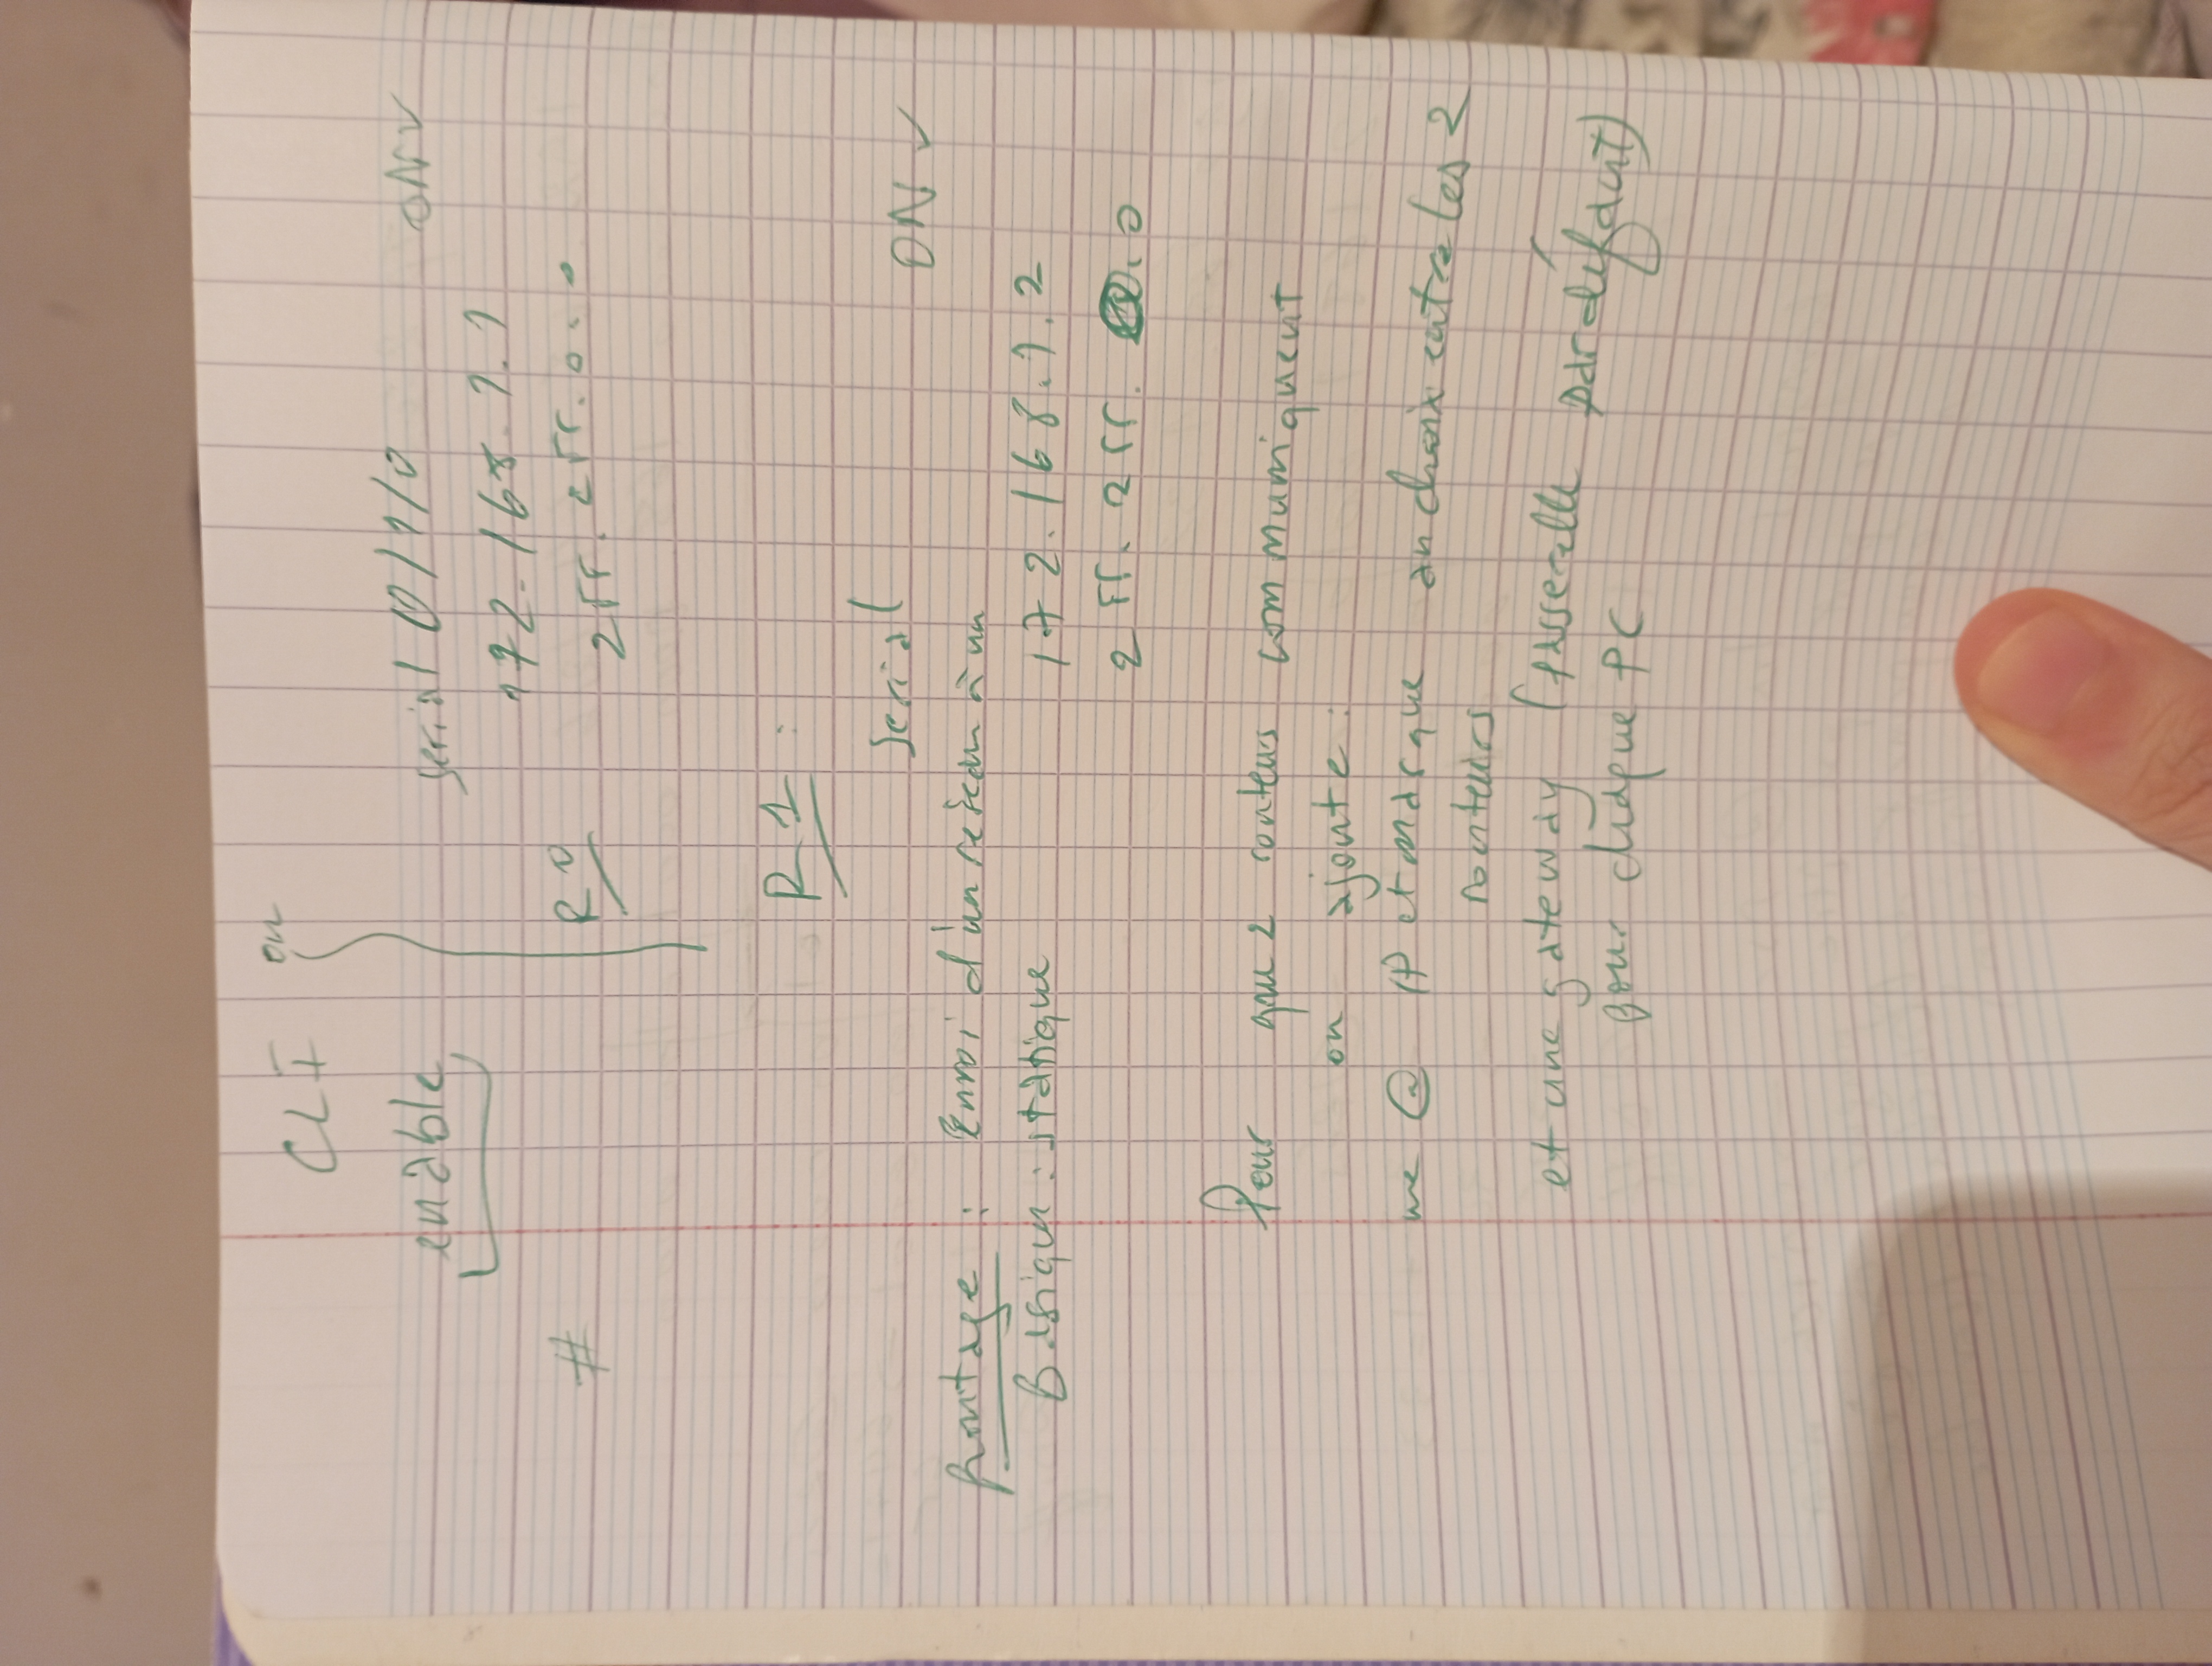 CLI
ou
enable
serial 0/1/0
ON ✓
172.168.1.1
#
R0
255.255.0.0
R1 :
Serial
ON ✓
Routage : Envoi d'un reseau à un
Basique : statique
172.168.1.2
255.255.0.0
Pour que 2 routeurs communiquent
on ajoute :
une @ IP et masque au choix entre les 2
routeurs
et une gateway (passerelle par défaut)
pour chaque PC